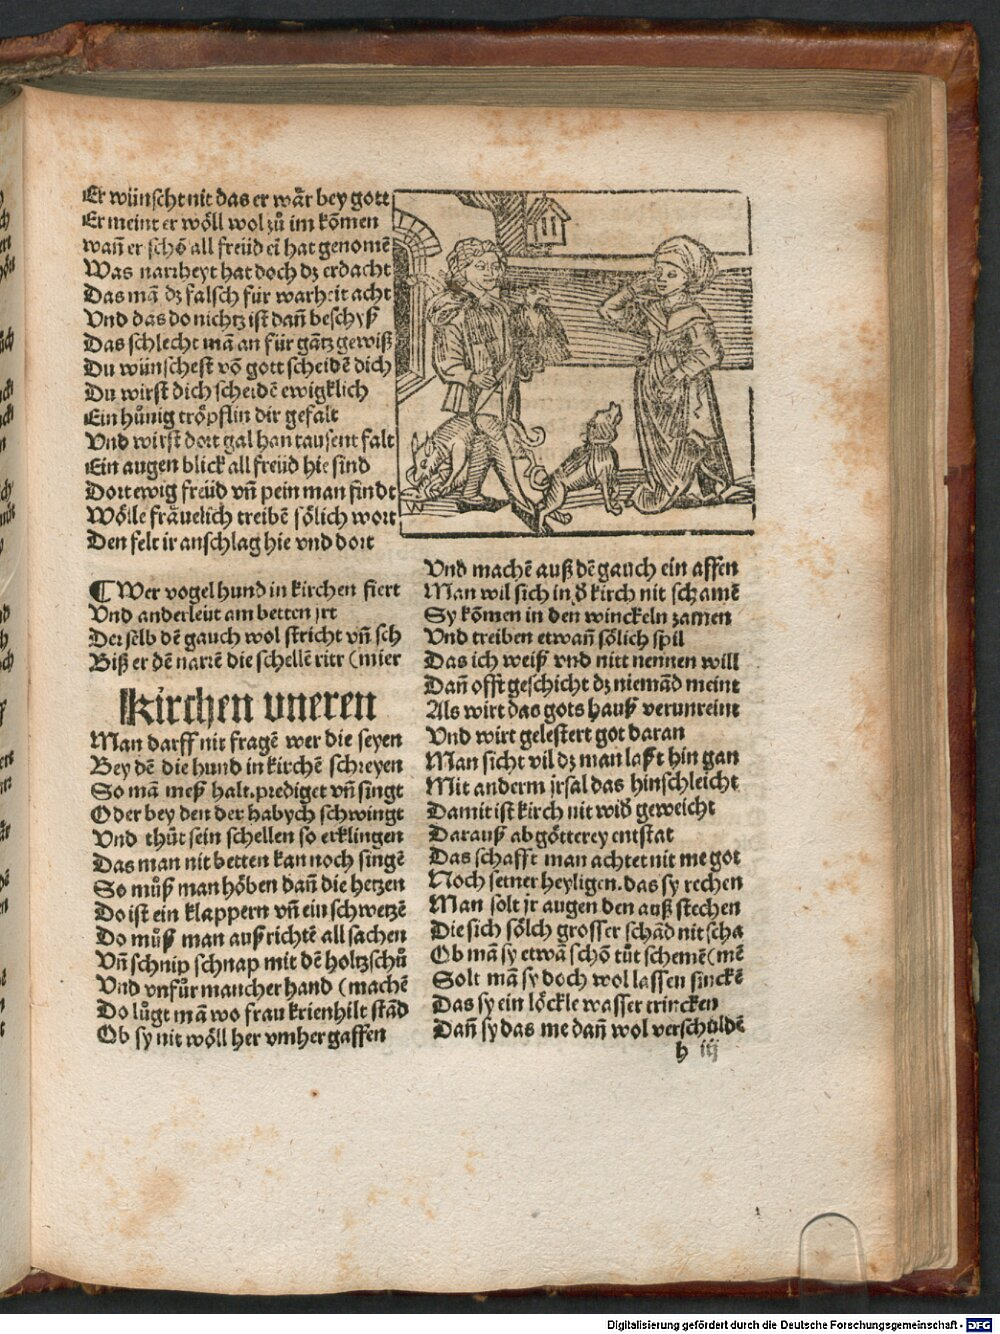 Er wünscht nit das er wår bey gott
Er meint er wöll wol zů im kōmen
wañ er schō all freüd eī hat genomē
Was narrheyt hat doch dz erdacht
Das mā dz falsch für warheit acht
Vnd das do nichtz ist dañ beschyß
Das schlecht mā an für gātz gewiß
Du wünschest vō gott scheidē dich
Du wirst dich scheidē ewigklich
Ein hůnig tröpflin dir gefalt
Vnd wirst dort gal han tausent falt
Ein augen blick all freüd hie sind
Dort ewig freüd vñ pein man findt
Wölle fråuelich treibē sölich wort
Den felt ir anschlag hie vnd dort
¶ Wer vogel hund in kirchen fiert
Vnd anderleüt am betten jrt
Der selb dē gauch wol stricht vñ sch
Biß er dē narrē die schellē ritr (mier
Kirchen vneren
Man darff nit fragē wer die seyen
Bey dē die hund in kirchē schreyen
So mā meß halt. prediget vñ singt
Oder bey den der habych schwingt
Vnd thůt sein schellen so erklingen
Das man nit betten kan noch singē
So můß man höben dañ die hetzen
Do ist ein klappern vñ ein schwetzē
Do můß man auß richtē all sachen
Vñ schnip schnap mit dē holtzschů
Vnd vnfůr mancher hand (machē
Do lůgt mā wo frau krienhilt stād
Ob sy nit wöll her vmher gaffen
Vnd machē auß dē gauch ein affen
Man wil sich in ð kirch nit schamē
Sy kōmen in den winckeln zamen
Vnd treiben etwañ sölich spil
Das ich weiß vnd nitt nennen will
Dañ offt geschicht dz niemād meint
Als wirt das gots hauß verunreint
Vnd wirt gelestert got daran
Man sicht vil dz man laßt hin gan
Mit anderm jrsal das hinschleicht
Damit ist kirch nit wið geweicht
Darauß abgötterey entstat
Das schafft man achtet nit me got
Noch seiner heyligen. das sy rechen
Man solt jr augen den auß stechen
Die sich sölch grosser schād nit scha
Ob mā sy etwā schō tüt schemē (mē
Solt mā sy doch wol lassen sinckē
Das sy ein löckle wasser trincken
Dañ sy das me dañ wol verschuldē
h iij
Digitalisierung gefördert durch die Deutsche Forschungsgemeinschaft - DFG